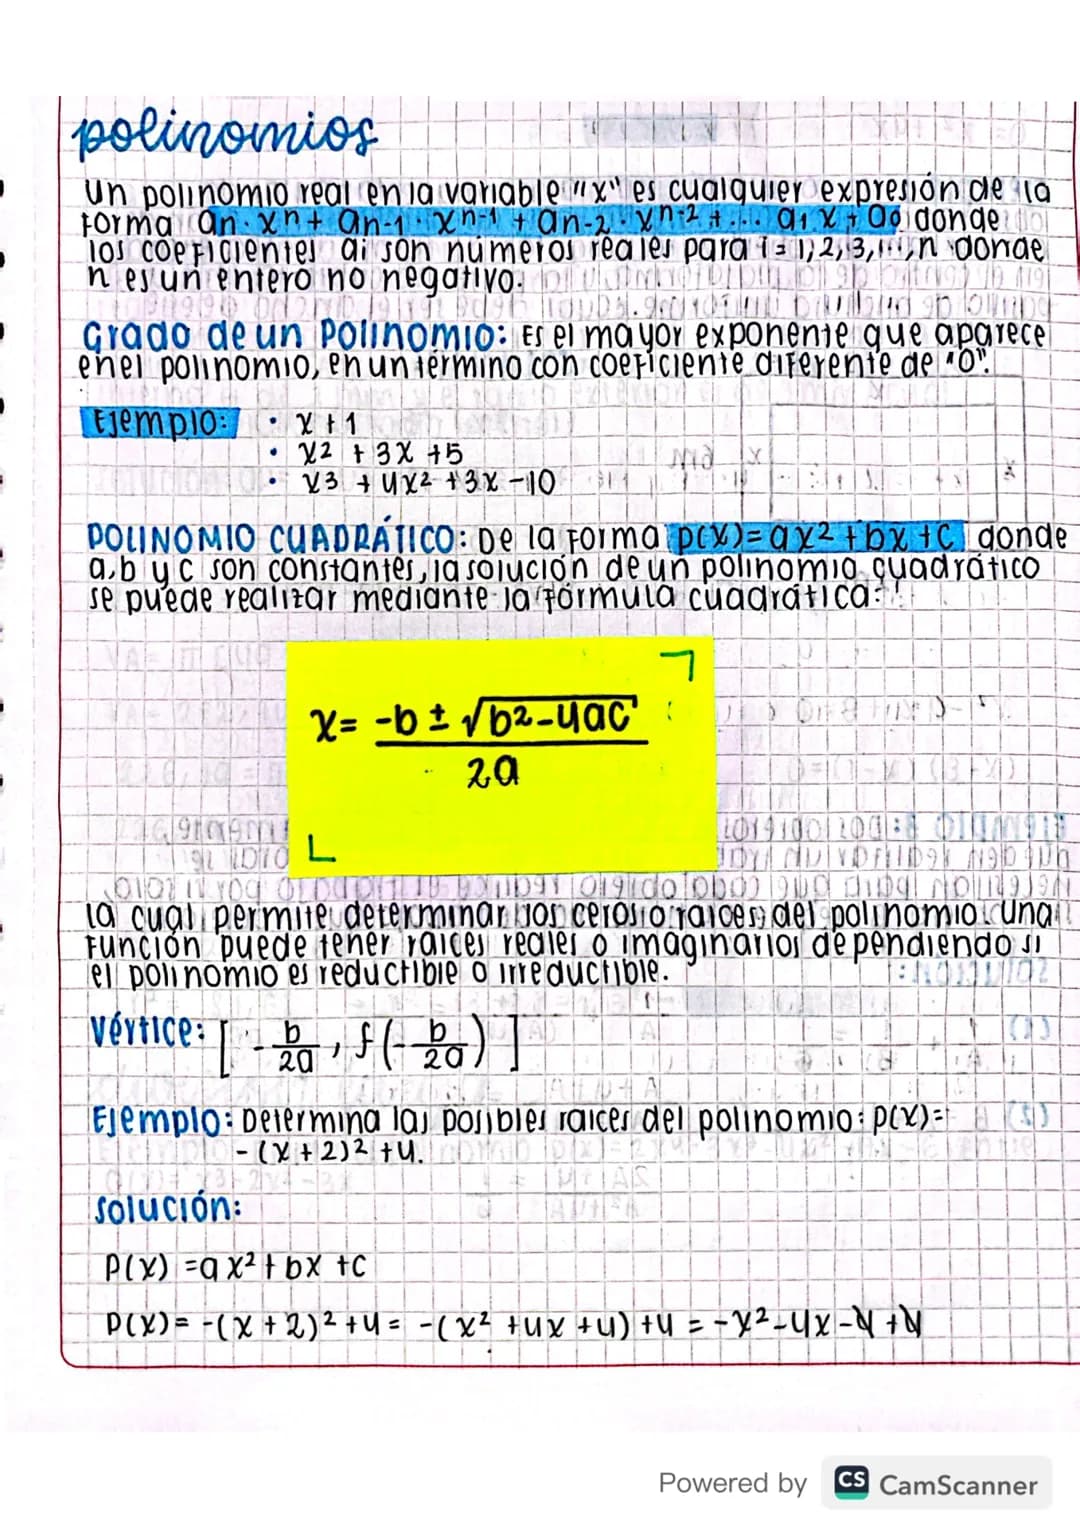 polinomios
Un polinomio real en la variable "x" es cualquier expresión de la
forma an · xn + an-1 · xn-1 + an-2 · xn-2 + ... a1 x + a0 donde
los coeficientes ai son números reales para i = 1, 2, 3, ..., n donde
n es un entero no negativo.
Grado de un Polinomio: Es el mayor exponente que aparece
en el polinomio, en un término con coeficiente diferente de "0".
Ejemplo: • x + 1
• x2 + 3x + 5
• x3 + 4x2 + 3x - 10
POLINOMIO CUADRÁTICO: De la forma p(x) = ax2 + bx + c donde
a, b y c son constantes, la solución de un polinomio cuadrático
se puede realizar mediante la fórmula cuadrática:
x = -b ± √b2-4ac
2a
la cual permite determinar los ceros o raíces del polinomio una
función puede tener raíces reales o imaginarios dependiendo si
el polinomio es reductible o irreductible.
Vértice: [ - b/2a , f(- b/2a) ]
Ejemplo: Determina las posibles raíces del polinomio: p(x) =
-(x + 2)2 + 4.
solución:
P(x) = ax2 + bx + c
P(x) = -(x + 2)2 + 4 = -(x2 + 4x + 4) + 4 = -x2 - 4x - 4 + 4
Powered by CS CamScanner